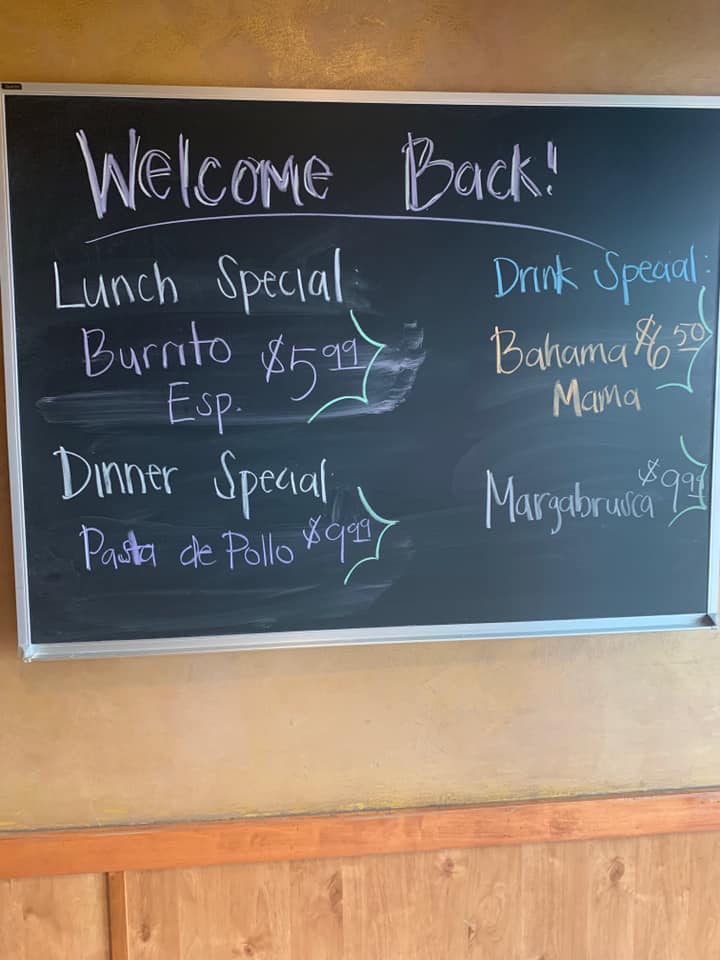 Welcome Back!
Lunch Special:
Burrito $5.99
Esp.
Dinner Special:
Pasta de Pollo $9.99
Drink Special:
Bahama $6.50
Mama
Margabrusca $9.99